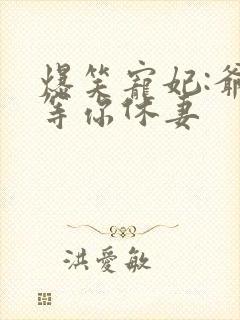 爆笑寵妃:爺
等你休妻
洪愛敏